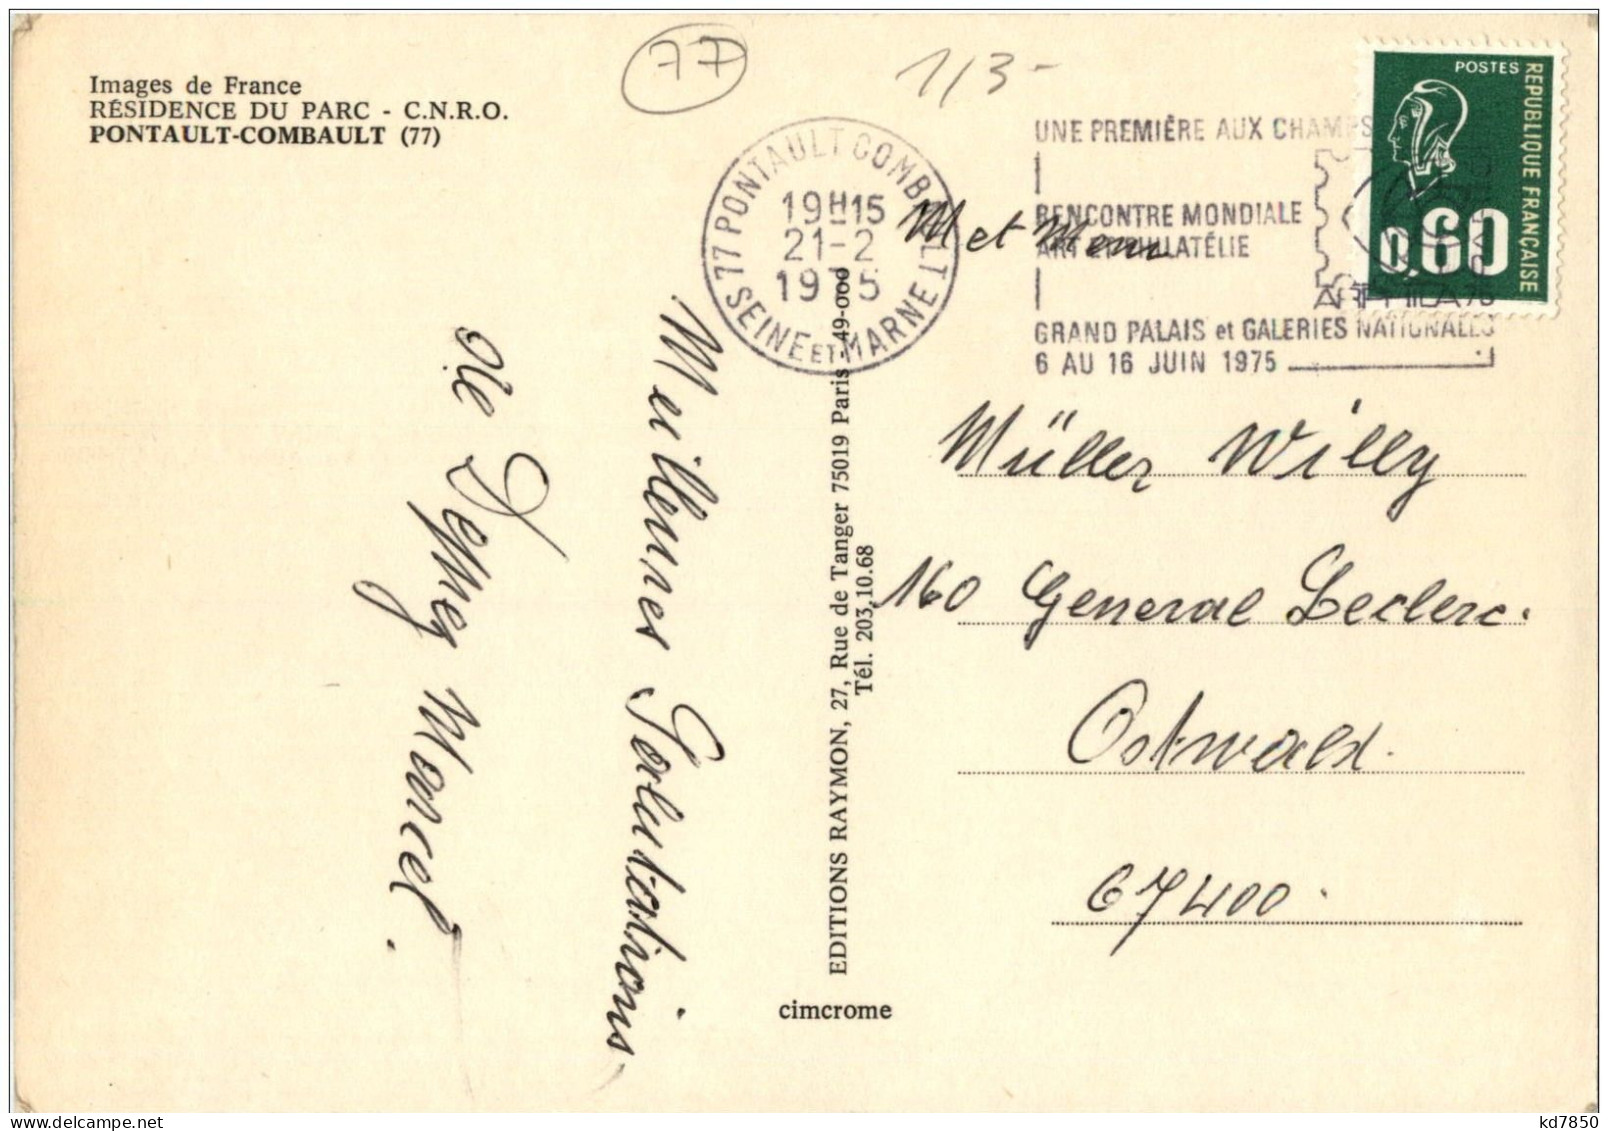 Images de France
RÉSIDENCE DU PARC - C.N.R.O.
PONTAULT-COMBAULT (77)
77
1/3-
77 PONTAULT COMBAULT
19H15
21-2
1975
SEINE ET MARNE
UNE PREMIÈRE AUX CHAMPS
RENCONTRE MONDIALE
ART ET PHILATÉLIE
ARPHILA 75
GRAND PALAIS et GALERIES NATIONALES
6 AU 16 JUIN 1975
POSTES
REPUBLIQUE FRANÇAISE
0,60
M et Mem
Müller Willy
160 General Leclerc.
Ostwald.
67400.
Meillenres Salutations
de Remy Marcel.
EDITIONS RAYMON, 27, Rue de Tanger 75019 Paris - 49-000
Tél. 203.10.68
cimcrome
kd7850